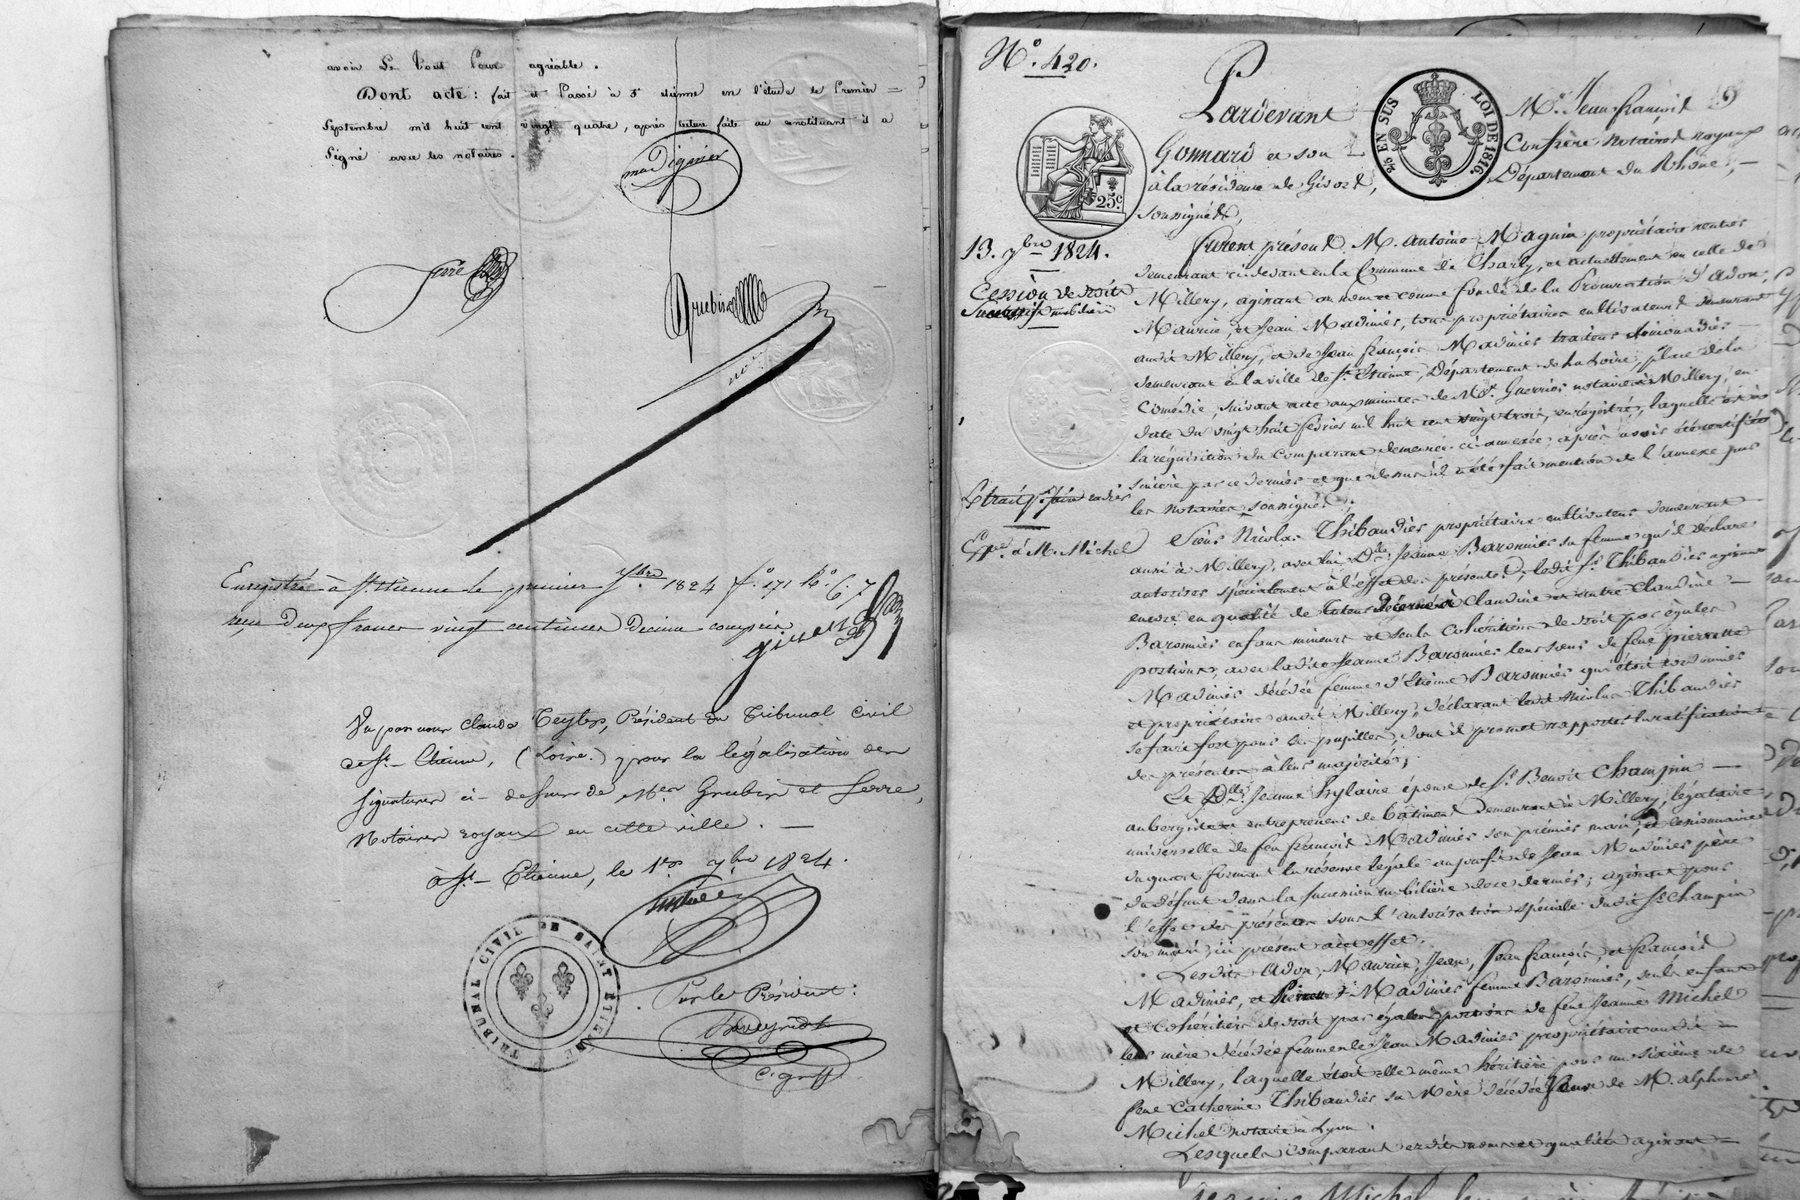 avoir Le Tout Pour agréable.
Dont acte : fait et Passé à St étienne en l'étude le Premier
Septembre mil huit cent vingt quatre, après lecture faite au constituant il a
Signé avec les notaires.
Serre
Grubis
Enregistré à St Etienne le premier 7bre 1824 fo 171 Ro C. 7
reçu deux francs vingt centimes Décime compris
Vu par nous Claude Teyter, Président du Tribunal Civil
de St Etienne, (Loire) pour la légalisation des
signatures ci-dessus de Mes Grubis et Serre,
Notaires royaux en cette ville.
à St Etienne, le 1er 7bre 1824.
TRIBUNAL CIVIL DE SAINT ETIENNE
Par le Président :
C. greff
No. 420.
Pardevant Me. Jean françois
Gonnard et son Confrère Notaires royaux
à la résidence de Givors, Département du Rhône,
soussignés,
25c
2/5 EN SUS LOI DE 1816
13. 7bre 1824.
Cession de droits
Successifs mobiliers
Extrait
Exp. à M. Michel
Furent présents M. Antoine Magnin propriétaire rentier
demeurant ci devant en la Commune de Charly, et actuellement en celle de
Millery, agissant au nom et comme fondé de la Procuration d'Adon,
Maurice, et Jean Madinier, tous propriétaires cultivateurs demeurant
audit Millery, et de Jean françois Madinier traiteur limonadier
demeurant en la ville de St. Etienne, Département de la Loire, place de la
Comédie, suivant acte aux minutes de Me Guerrier notaire à Millery, en
date du vingt huit février mil huit cent vingt trois, enregistré, laquelle est à
la réquisition du comparant demeurée ci-annexée, après avoir été certifiée
sincère par ce dernier et que dessus il a été fait mention de l'annexe par
les notaires soussignés ;
Sieur Nicolas Thibaudier propriétaire cultivateur demeurant
aussi à Millery, avec lui Dlle Jeanne Baronnier sa femme qu'il déclare
autoriser spécialement à l'effet des présentes, ledit Sr Thibaudier agissant
encore en qualité de Tuteur décerné à Claudine et autre Claudine
Baronnier enfans mineurs et seuls Cohéritiers de droit par égales
portions, avec ladite Jeanne Baronnier leur sœur de feue pierrette
Madinier décédée femme d'Etienne Baronnier qui étoit cordonnier
et propriétaire audit Millery, déclarant ledit Nicolas Thibaudier
se faire fort pour les pupilles, dont il promet rapporter la ratification
des présentes à leur majorité ;
Et Dlle Jeanne hylaire épouse de Sr Benoit Champin
aubergiste et entrepreneur de bâtiment demeurant à Millery, légataire
universelle de feu françois Madinier son premier mari, et cessionnaire
du quart formant la réserve légale au profit de Jean Madinier père
du défunt dans la succession mobilière de ce dernier ; agissant pour
l'effet des présentes sous l'autorisation spéciale dudit Sr Champin
son mari, ici présent à cet effet.
Lesdits Adon, Maurice, Jean, Jean françois, et françois
Madinier, et Pierrette Madinier femme Baronnier, seuls enfans
et Cohéritiers de droit par égales portions de feue Jeanne Michel
leur mère décédée femme de Jean Madinier propriétaire audit
Millery, laquelle étoit elle même héritière pour un sixième de
feue Catherine Thibaudier sa Mère décédée Veuve de M. alphonse
Michel notaire à Lyon.
Lesquels comparant esdits noms et qualités agissant